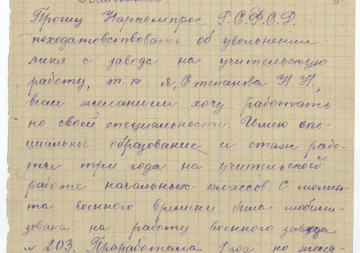 Прошу Наркомпрос Р.С.Ф.С.Р.
походатовствовать об увольнении
меня с завода на учительскую
работу, т.к. я,
всем желанием хочу работать
по своей специальности. Имею спе-
циальное образование и стаж рабо-
ты три года на учительской
работе начальных классов. С момен-
та военного времени была мобили-
зована на работу военного завода
№ 203. Проработала 1 год но